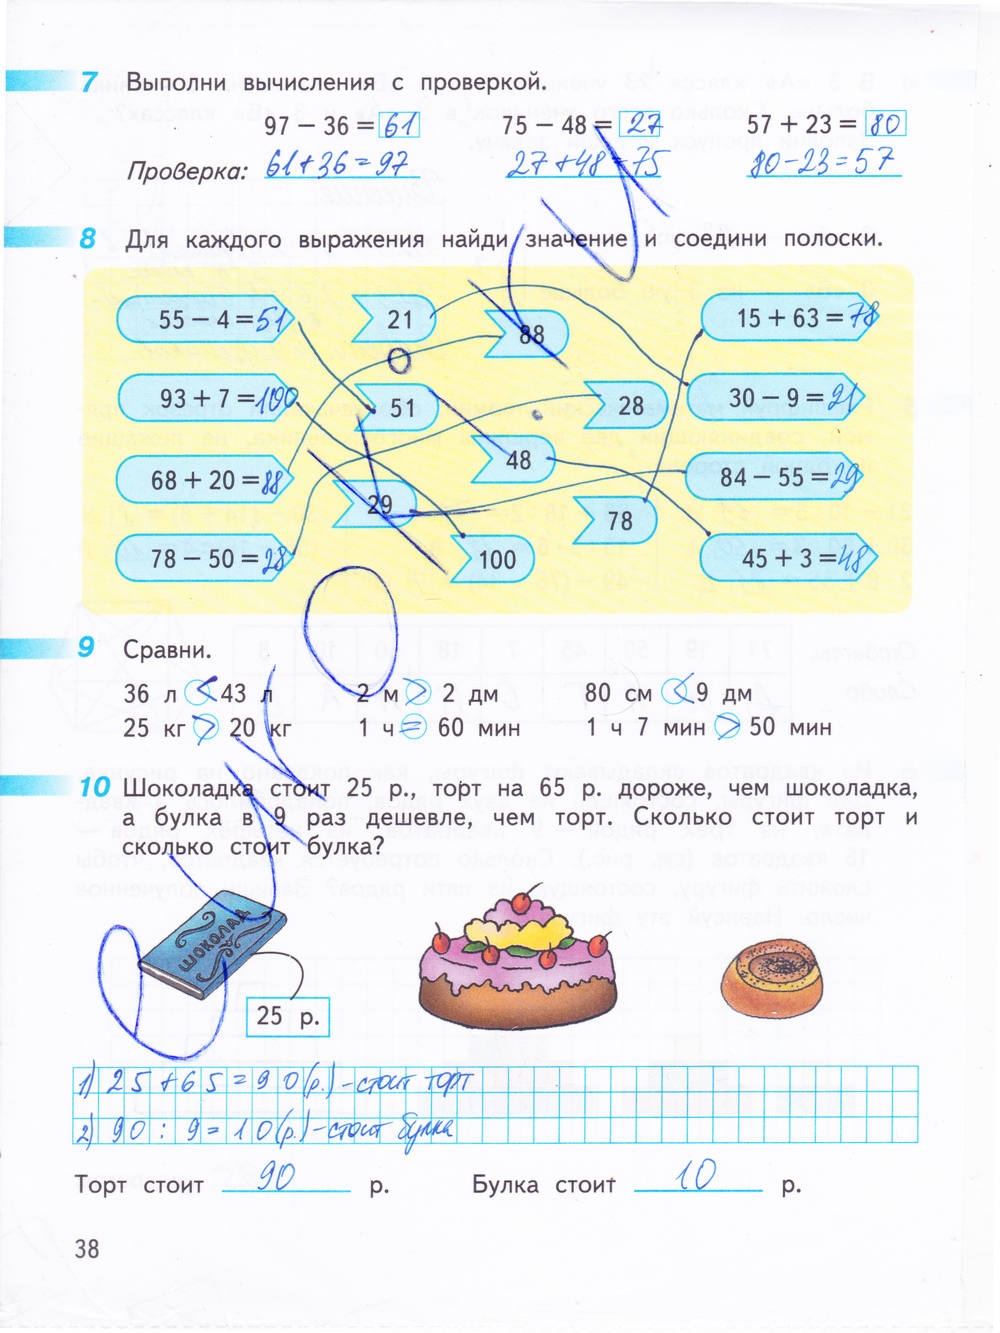 7 Выполни вычисления с проверкой.
97 − 36 = 61 75 − 48 = 27 57 + 23 = 80
Проверка: 61+36=97 27+48=75 80-23=57
8 Для каждого выражения найди значение и соедини полоски.
55 − 4 = 51 21 88 15 + 63 = 78
93 + 7 = 100 51 28 30 − 9 = 21
68 + 20 = 88 48 84 − 55 = 29
29 78
78 − 50 = 28 100 45 + 3 = 48
9 Сравни.
36 л < 43 л 2 м > 2 дм 80 см < 9 дм
25 кг > 20 кг 1 ч = 60 мин 1 ч 7 мин > 50 мин
10 Шоколадка стоит 25 р., торт на 65 р. дороже, чем шоколадка,
а булка в 9 раз дешевле, чем торт. Сколько стоит торт и
сколько стоит булка?
ШОКОЛАД
25 р.
1) 25+65=90(р.)-стоит торт
2) 90:9=10(р.)-стоит булка
Торт стоит 90 р. Булка стоит 10 р.
38